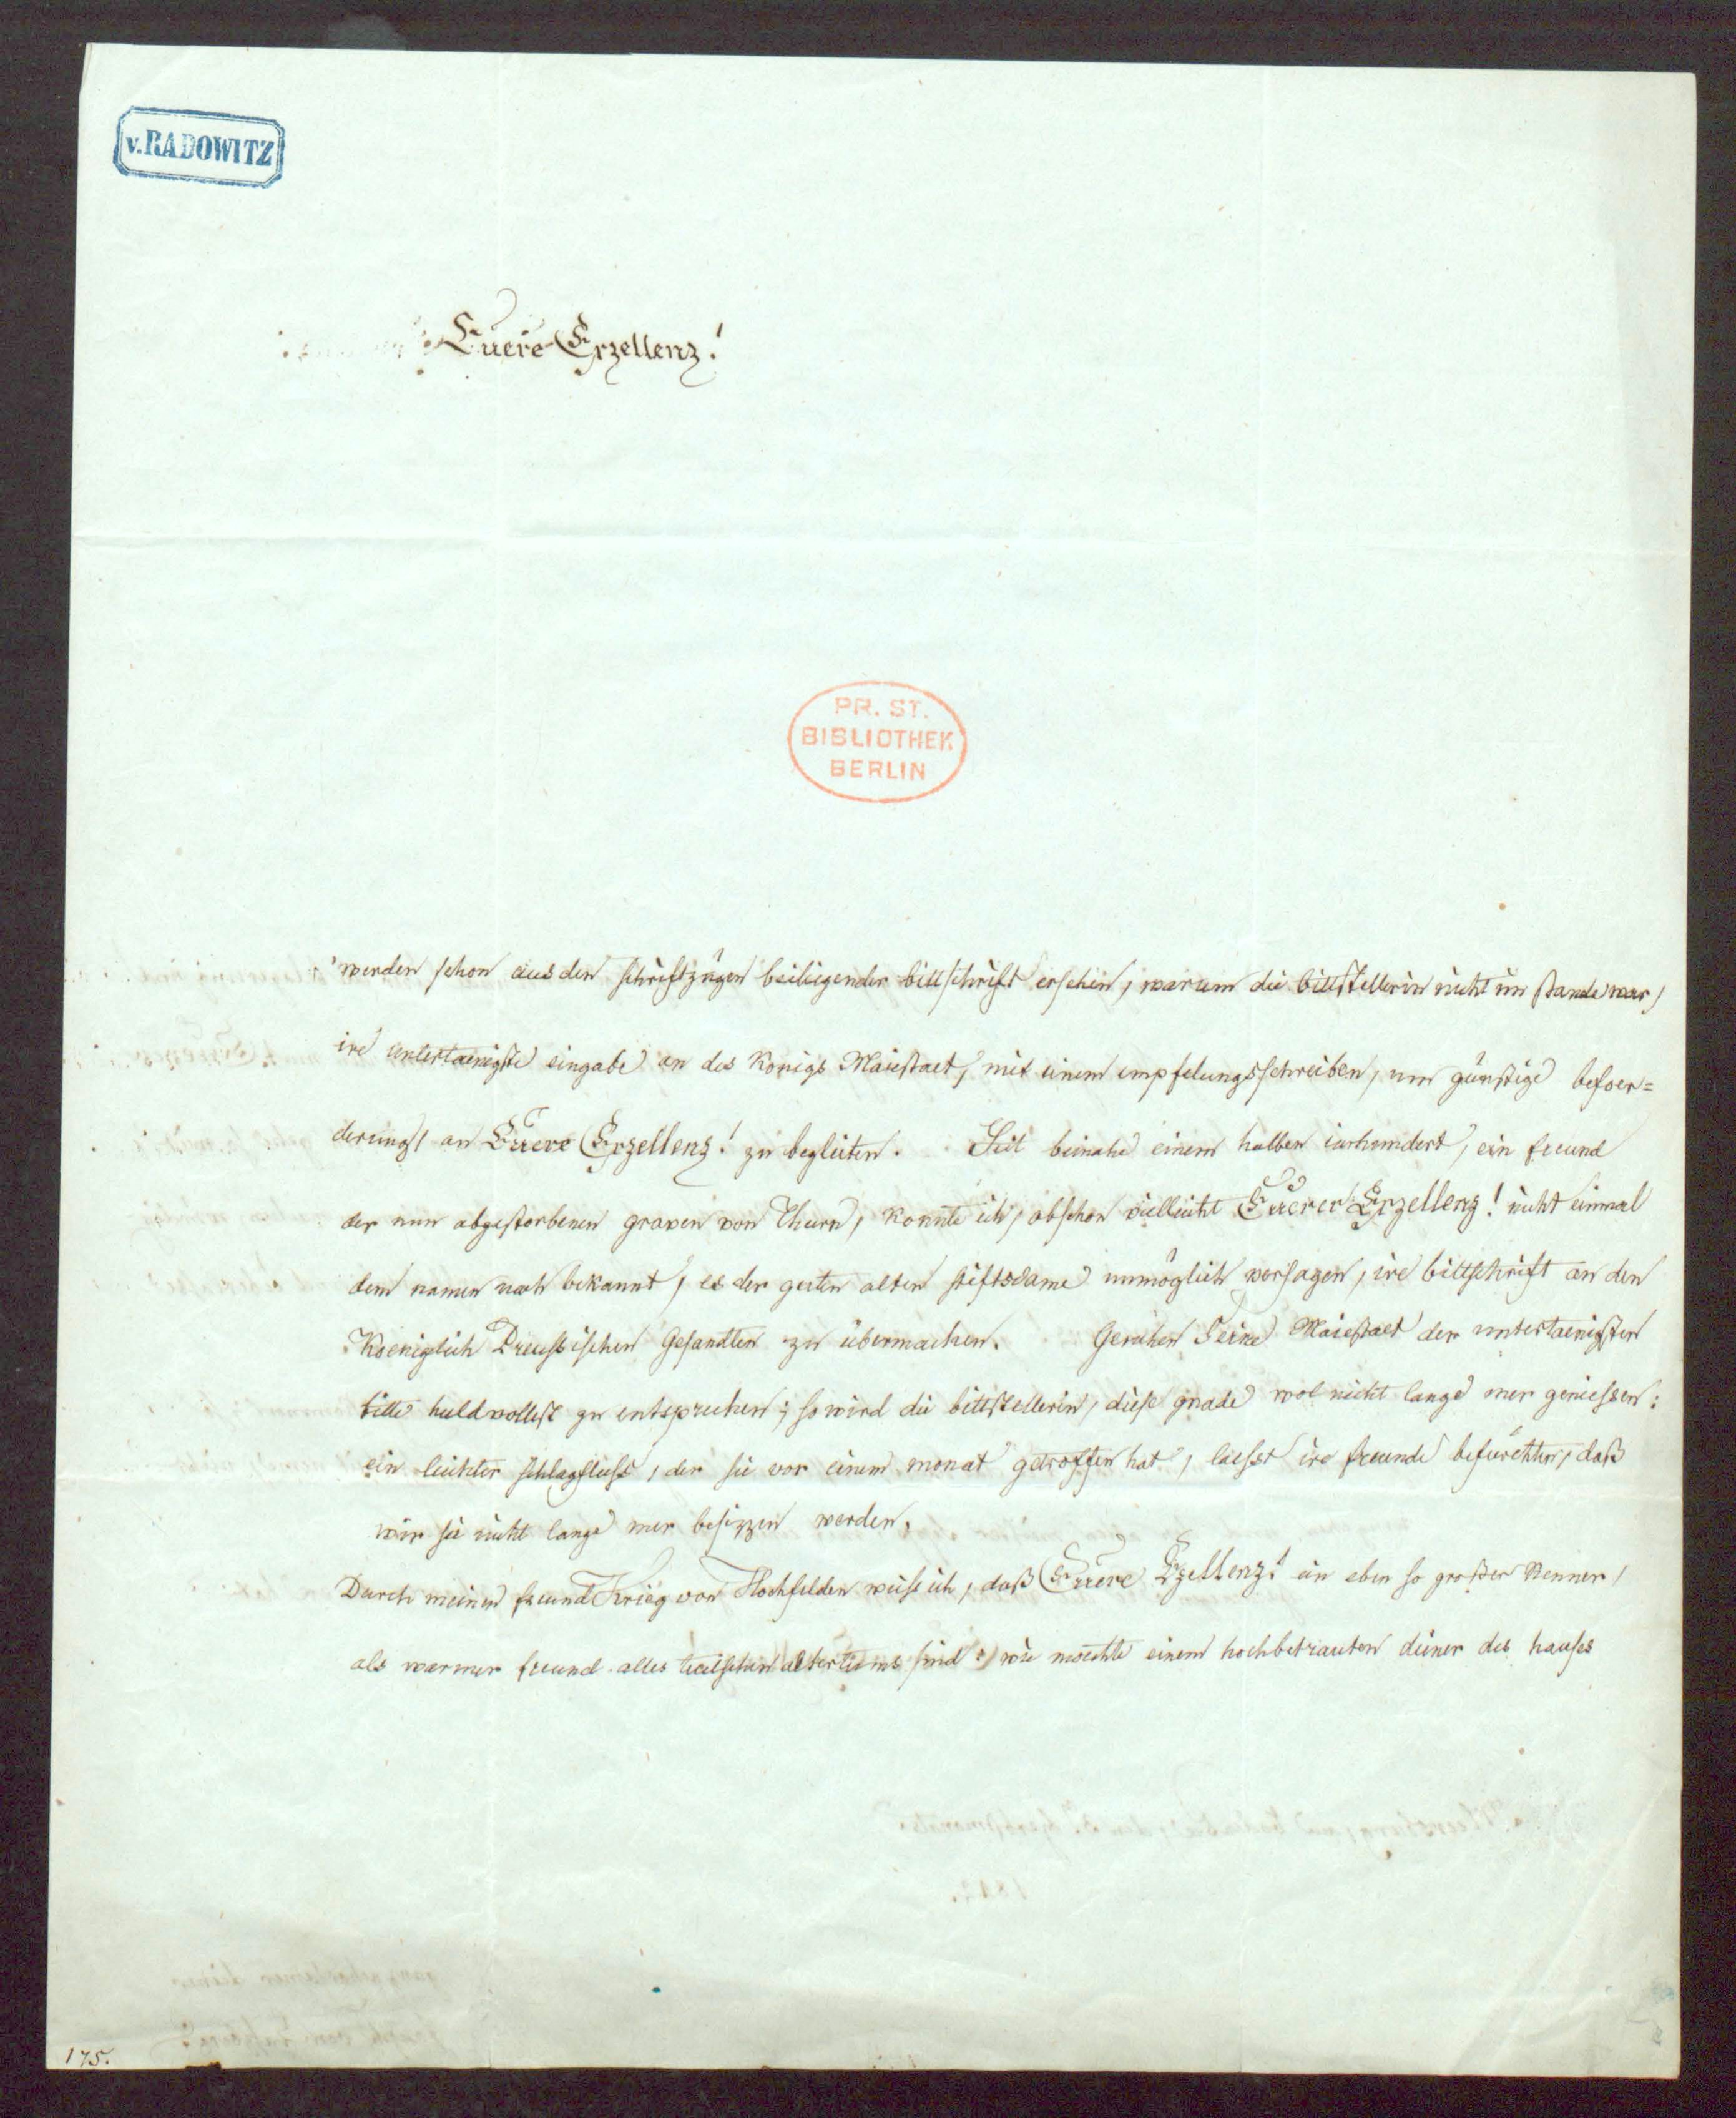 v. RADOWITZ
Euere Exzellenz!
PR. ST.
BIBLIOTHEK
BERLIN
werden schon aus den schriftzügen beiliegender bittschrift ersehen, warum die bittstellerin nicht im stande war,
ire untertaenigste eingabe an des Königs Maiestaet, mit einem empfelungsschreiben, um günstige befoer=
derung, an Euere Exzellenz! zu begleiten. Seit beinahe einem halben iarhundert, ein freund
der nun abgestorbenen graven von Thurn, konnte ich, obschon vielleicht Euerer Exzellenz! nicht einmal
dem namen nach bekannt, es der guten alten stiftsdame unmöglich versagen, ire bittschrift an den
Koeniglich Preussischen Gesandten zu übermachen. Geruhen Seine Maiestaet der untertaenigsten
bitte huldvollest zu entsprechen; so wird die bittstellerin, diese gnade wol nicht lange mer geniessen:
ein leichter schlagfluss, der sie vor einem monat getroffen hat, laesst ire freunde befürchten, daß
wir sie nicht lange mer besizzen werden.
Durch meinen freund Krieg von Hochfelden weiss ich, daß Euere Exzellenz! ein eben so großer Kenner,
als warmer freund alles teutschen altertums sind: wie moechte einem hochbetrauten diener des hauses
175.